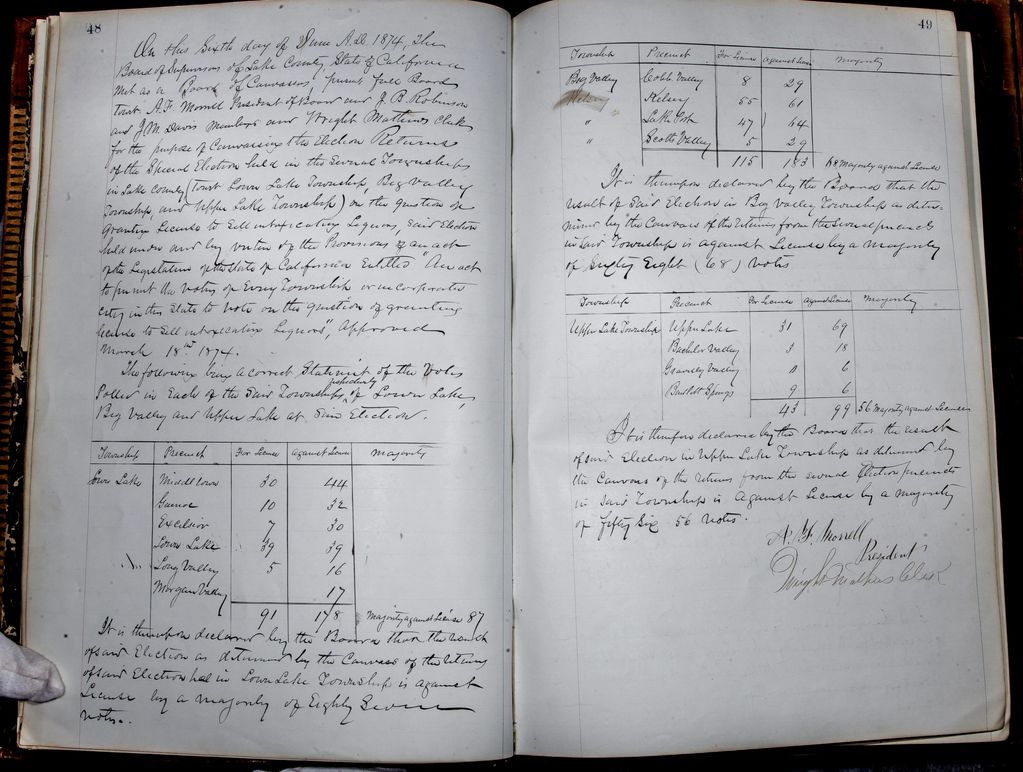 48
On this Sixth day of June A.D. 1874, The
Board of Supervisors of Lake County State of California
met as a Board of Canvassers, present full Board
towit A.F. Morrell President of Board and J. B. Robinson
and J. M. Davis Members and Dwight Mathews Clerk
for the purpose of Canvassing the Election Returns
of the Special Election held in the Several Townships
in Lake County (towit Lower Lake Township, Big Valley
Township, and Upper Lake Township) on the question of
granting License to Sell intoxicating Liquors, Said Election
held under and by virtue of the Provisions of an act
of the Legislature of the State of California Entitled "An act
to permit the voters of Every Township or incorporated
city in this State to vote on the question of granting
license to Sell intoxicating Liquors", Approved
March 18th 1874.
The following being a correct Statement of the Votes
Polled in Each of the Said Townships, respectively of Lower Lake,
Big Valley and Upper Lake at Said Election.
Township Precinct For License Against License Majority
Lower Lake Middletown 30 44
Guenoc 10 32
Excelsior 7 30
Lower Lake 39 39
" Long Valley 5 16
Morgan Valley 17
91 178 Majority against License 87
It is thereupon declared by the Board that the result
of said Election as determined by the Canvass of the returns
of said Election had in Lower Lake Township is against
License by a majority of Eighty Seven
votes.
49
Township Precinct For License Against License Majority
Big Valley Cobb Valley 8 29
Kelsey Kelsey 55 61
" Lake Port 47 64
" Scotts Valley 5 29
115 183 68 Majority against License
It is thereupon declared by the Board that the
result of Said Election in Big Valley Township as deter-
mined by the Canvass of the returns from the several precincts
in Said Township is against License by a majority
of Sixty Eight (68) votes
Township Precinct For License Against License Majority
Upper Lake Township Upper Lake 31 69
Bachelor Valley 3 18
Gravelly Valley 0 6
Bartlett Springs 9 6
43 99 56 Majority against License
It is therefore declared by the Board that the result
of said Election in Upper Lake Township as determined by
the Canvass of the returns from the several Election precincts
in Said Township is Against License by a majority
of fifty Six 56 votes.
A. F. Morrell
President
Dwight Mathews Clerk